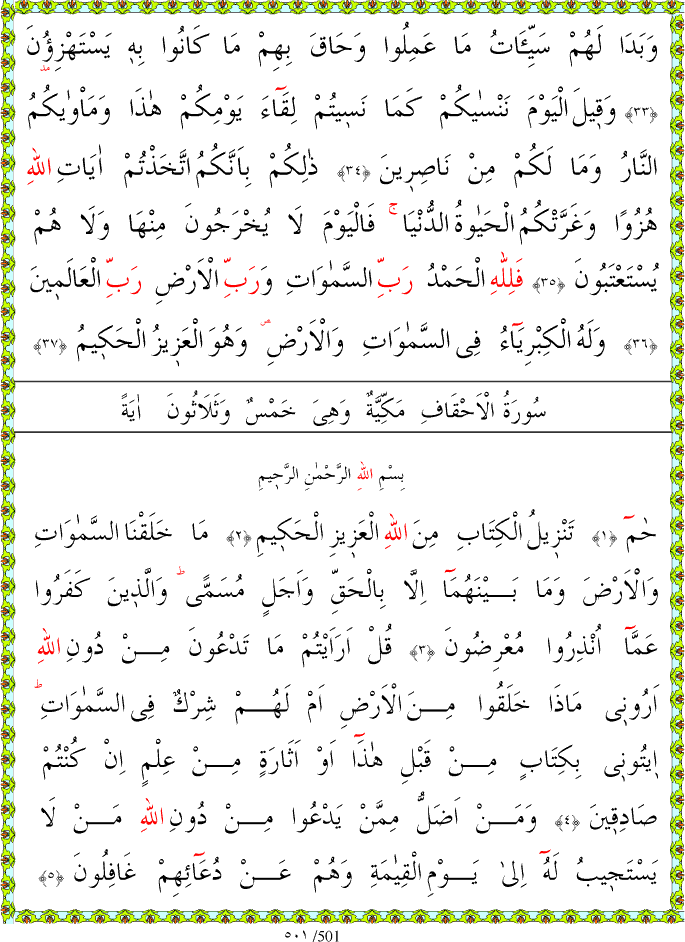 وَبَدَا لَهُمْ سَيِّـَٔاتُ مَا عَمِلُوا وَحَاقَ بِهِمْ مَا كَانُوا بِهٖ يَسْتَهْزِؤُ۫نَ
﴿٣٣﴾ وَق۪يلَ الْيَوْمَ نَنْسٰيكُمْ كَمَا نَس۪يتُمْ لِقَٓاءَ يَوْمِكُمْ هٰذَا وَمَاْوٰيكُمُ
النَّارُ وَمَا لَكُمْ مِنْ نَاصِر۪ينَ ﴿٣٤﴾ ذٰلِكُمْ بِاَنَّكُمُ اتَّخَذْتُمْ اٰيَاتِ اللّٰهِ
هُزُوًا وَغَرَّتْكُمُ الْحَيٰوةُ الدُّنْيَاۚ فَالْيَوْمَ لَا يُخْرَجُونَ مِنْهَا وَلَا هُمْ
يُسْتَعْتَبُونَ ﴿٣٥﴾ فَلِلّٰهِ الْحَمْدُ رَبِّ السَّمٰوَاتِ وَرَبِّ الْاَرْضِ رَبِّ الْعَالَم۪ينَ
﴿٣٦﴾ وَلَهُ الْكِبْرِيَٓاءُ فِى السَّمٰوَاتِ وَالْاَرْضِۖ وَهُوَ الْعَز۪يزُ الْحَك۪يمُ ﴿٣٧﴾
سُورَةُ الْاَحْقَافِ مَكِّيَّةٌ وَهِىَ خَمْسٌ وَثَلَاثُونَ اٰيَةً
بِسْمِ اللّٰهِ الرَّحْمٰنِ الرَّح۪يمِ
حٰمٓ ﴿١﴾ تَنْز۪يلُ الْكِتَابِ مِنَ اللّٰهِ الْعَز۪يزِ الْحَك۪يمِ ﴿٢﴾ مَا خَلَقْنَا السَّمٰوَاتِ
وَالْاَرْضَ وَمَا بَيْنَهُمَٓا اِلَّا بِالْحَقِّ وَاَجَلٍ مُسَمًّىۜ وَالَّذ۪ينَ كَفَرُوا
عَمَّٓا اُنْذِرُوا مُعْرِضُونَ ﴿٣﴾ قُلْ اَرَاَيْتُمْ مَا تَدْعُونَ مِنْ دُونِ اللّٰهِ
اَرُون۪ى مَاذَا خَلَقُوا مِنَ الْاَرْضِ اَمْ لَهُمْ شِرْكٌ فِى السَّمٰوَاتِۜ
ا۪يتُون۪ى بِكِتَابٍ مِنْ قَبْلِ هٰذَٓا اَوْ اَثَارَةٍ مِنْ عِلْمٍ اِنْ كُنْتُمْ
صَادِق۪ينَ ﴿٤﴾ وَمَنْ اَضَلُّ مِمَّنْ يَدْعُوا مِنْ دُونِ اللّٰهِ مَنْ لَا
يَسْتَج۪يبُ لَهُٓ اِلٰى يَوْمِ الْقِيٰمَةِ وَهُمْ عَنْ دُعَٓائِهِمْ غَافِلُونَ ﴿٥﴾
٥٠١ /501